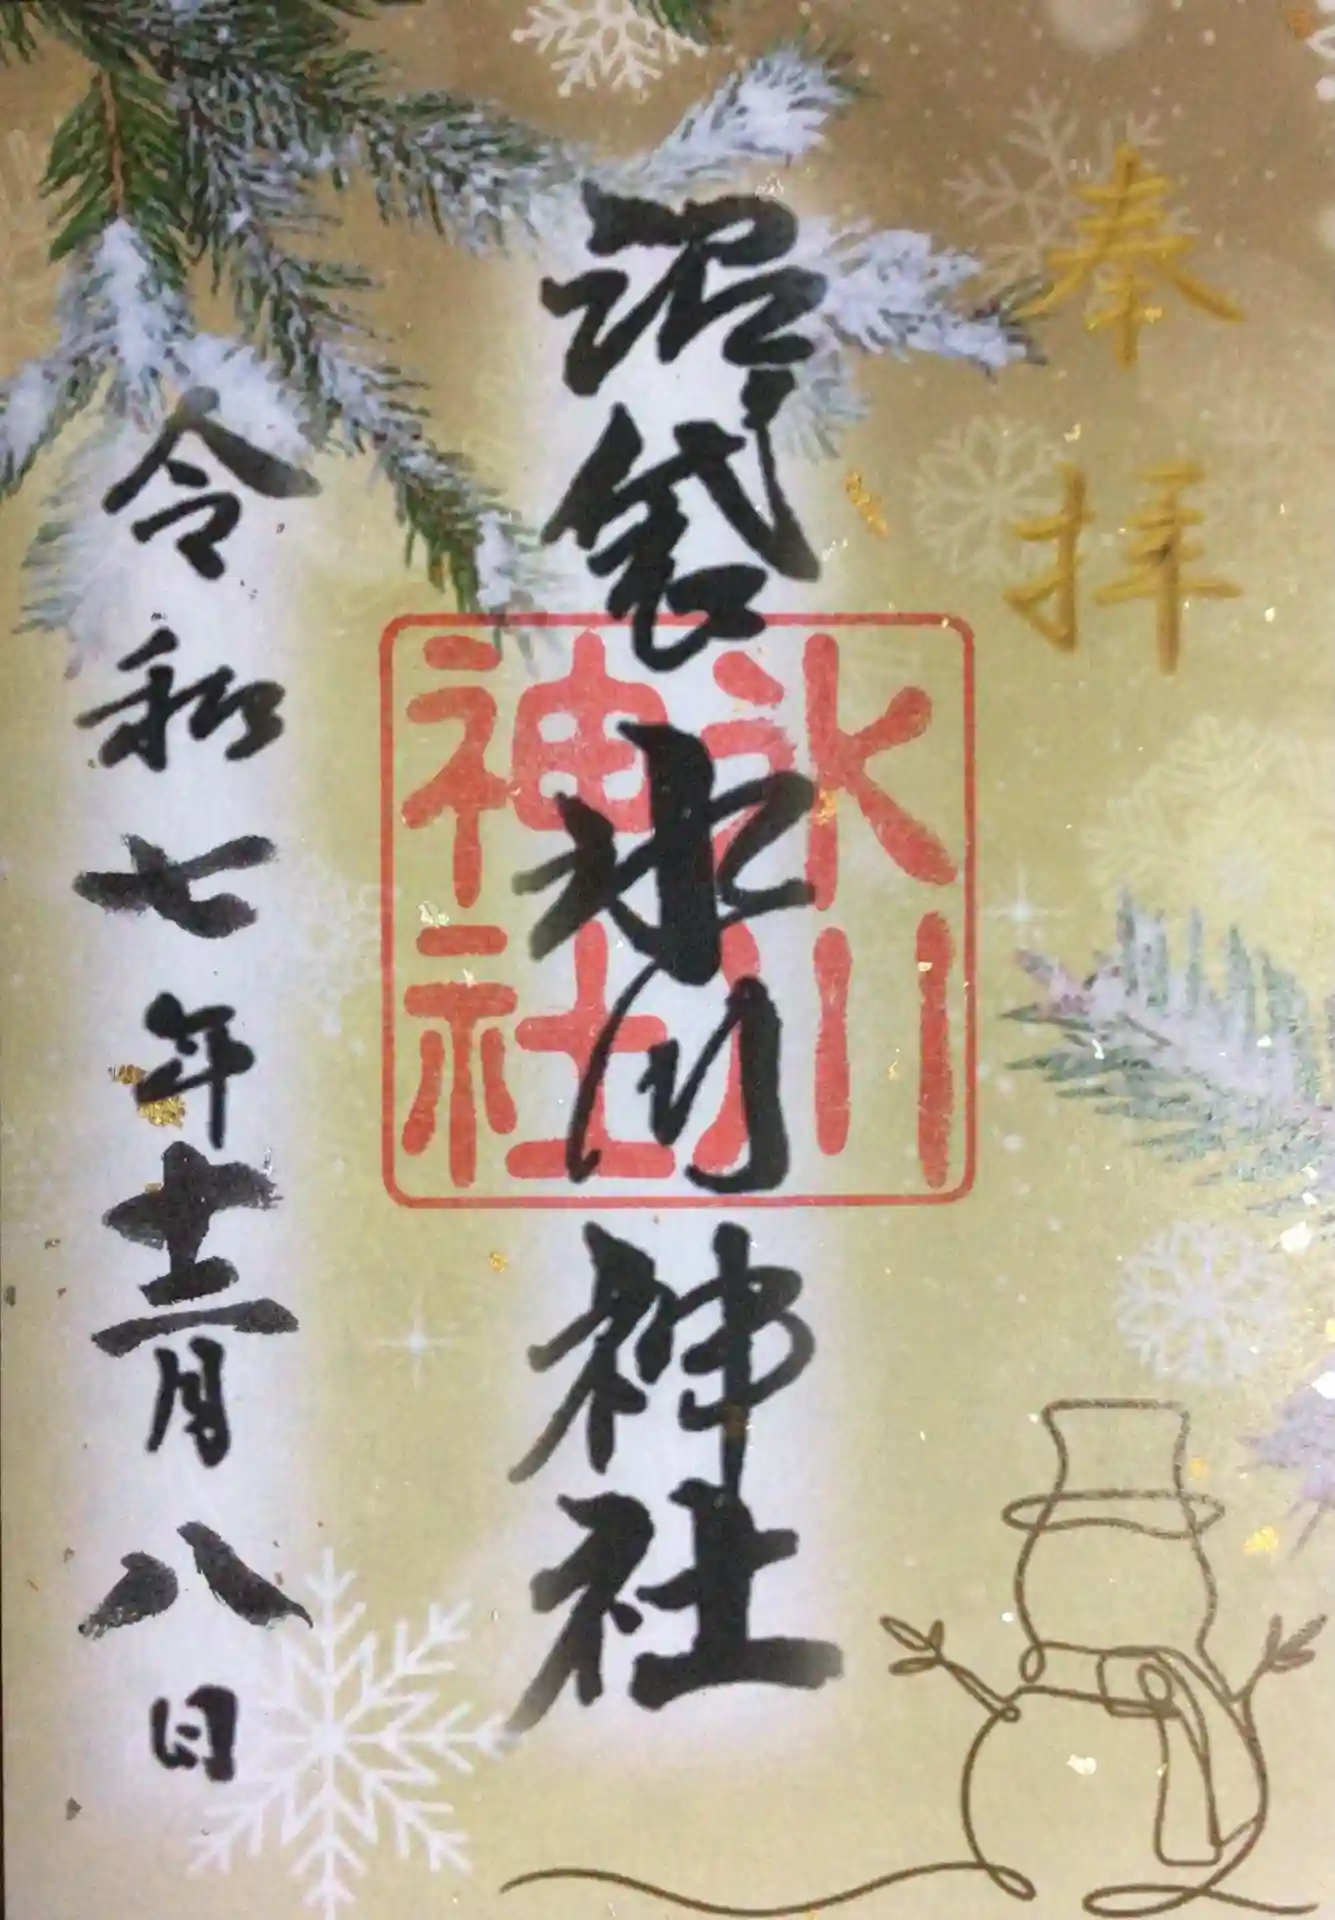 奉拝
沼袋氷川神社
氷川
神社
令和七年十二月八日